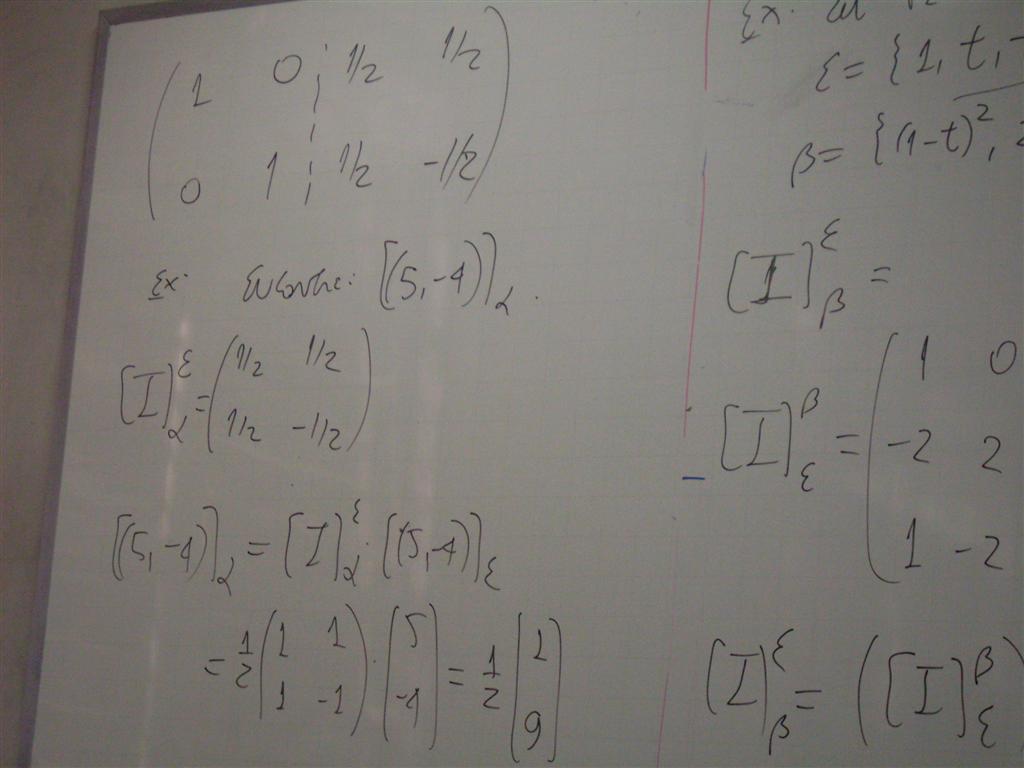 1 0 ¦ 1/2 1/2
0 1 ¦ 1/2 -1/2
Ex: Encontre: [(5,-4)]α.
[I]^ε_α = (1/2 1/2
1/2 -1/2)
[(5,-4)]α = [I]^ε_α · [(5,-4)]ε
= 1/2 (1 1
1 -1) · [5
-4] = 1/2 [1
9]
Ex.
ε = {1, t,
β = {(1-t)², 2
[I]^ε_β =
[I]^β_ε = (1 0
-2 2
1 -2
[I]^ε_β = ([I]^β_ε)